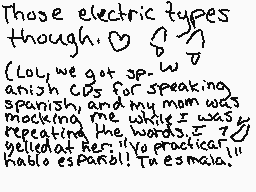 Those electric types
though. ♡
(LOL, we got sp-
anish CDs for speaking
spanish, and my mom was
mocking me while I was
repeating the words. I
yelled at her: "Yo practicar
hablo español! Tu es mala!"